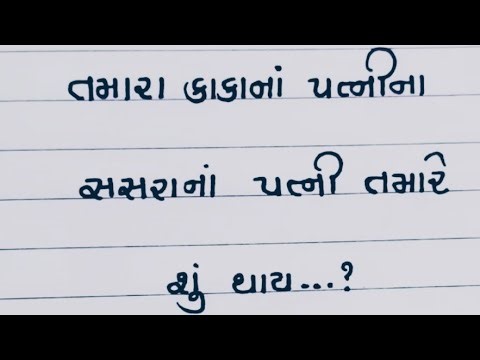 તમારા કાકાનાં પત્નીના
સસરાનાં પત્ની તમારે
શું થાય...?